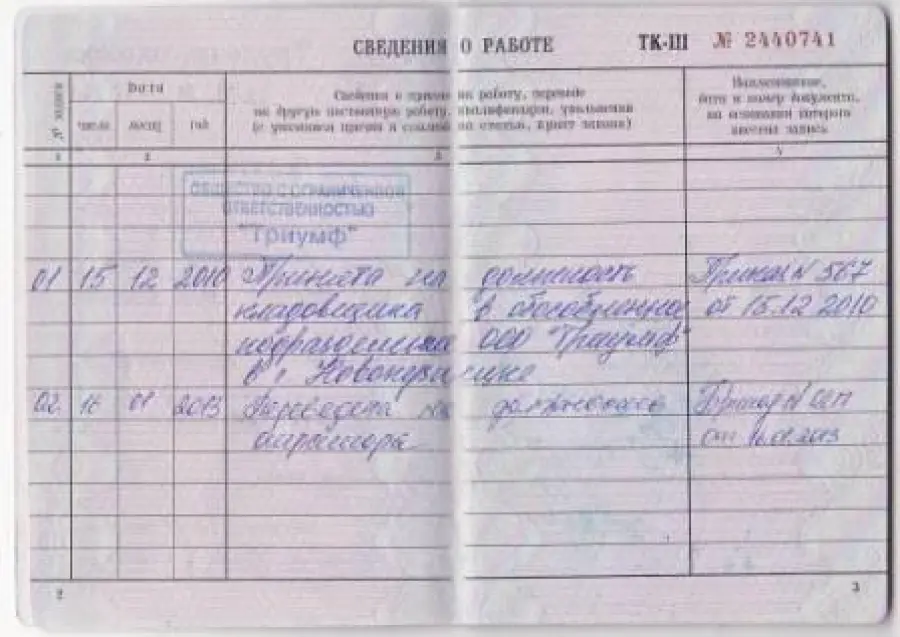 СВЕДЕНИЯ О РАБОТЕ ТК-III № 2440741
№ записи
Дата
число месяц год
Сведения о приеме на работу, переводе
на другую постоянную работу, квалификации, увольнении
(с указанием причин и ссылкой на статью, пункт закона)
Наименование,
дата и номер документа,
на основании которого
внесена запись
1 2 3 4
ОБЩЕСТВО С ОГРАНИЧЕННОЙ
ОТВЕТСТВЕННОСТЬЮ
"Триумф"
01 15 12 2010 Принята на должность Приказ N 567
кладовщика в обособленное от 15.12 2010
подразделение ООО "Триумф"
в г
02 16 01 2013 Переведена на должность Приказ N
директора от 16.01.2013
2 3